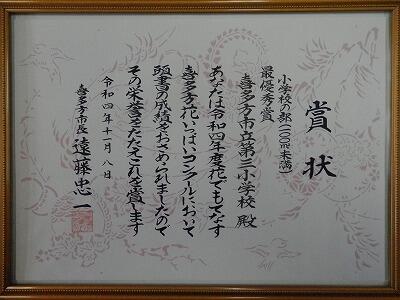 賞状
小学校の部(一〇〇㎡未満)
最優秀賞
喜多方市立第三小学校 殿
あなたは令和四年度花でもてなす
喜多方花いっぱいコンクールにおいて
頭書の成績をおさめられましたので
その栄誉をたたえこれを賞します
令和四年十一月八日
喜多方市長 遠藤忠一